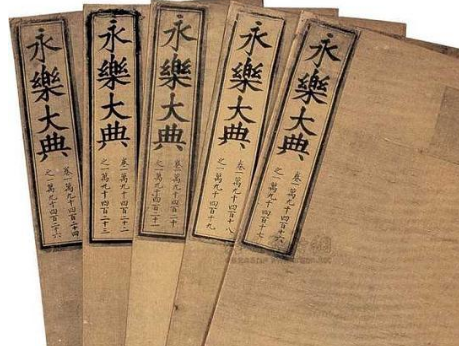 永樂大典
卷一萬九千四百二十四
之一萬九千四百二十六
永樂大典
卷一萬九千四百二十二
之一萬九千四百二十三
永樂大典
卷一萬九千四百二十
之一萬九千四百二十一
永樂大典
卷一萬九千四百十八
之一萬九千四百十九
永樂大典
卷一萬九千四百十六
之一萬九千四百十七